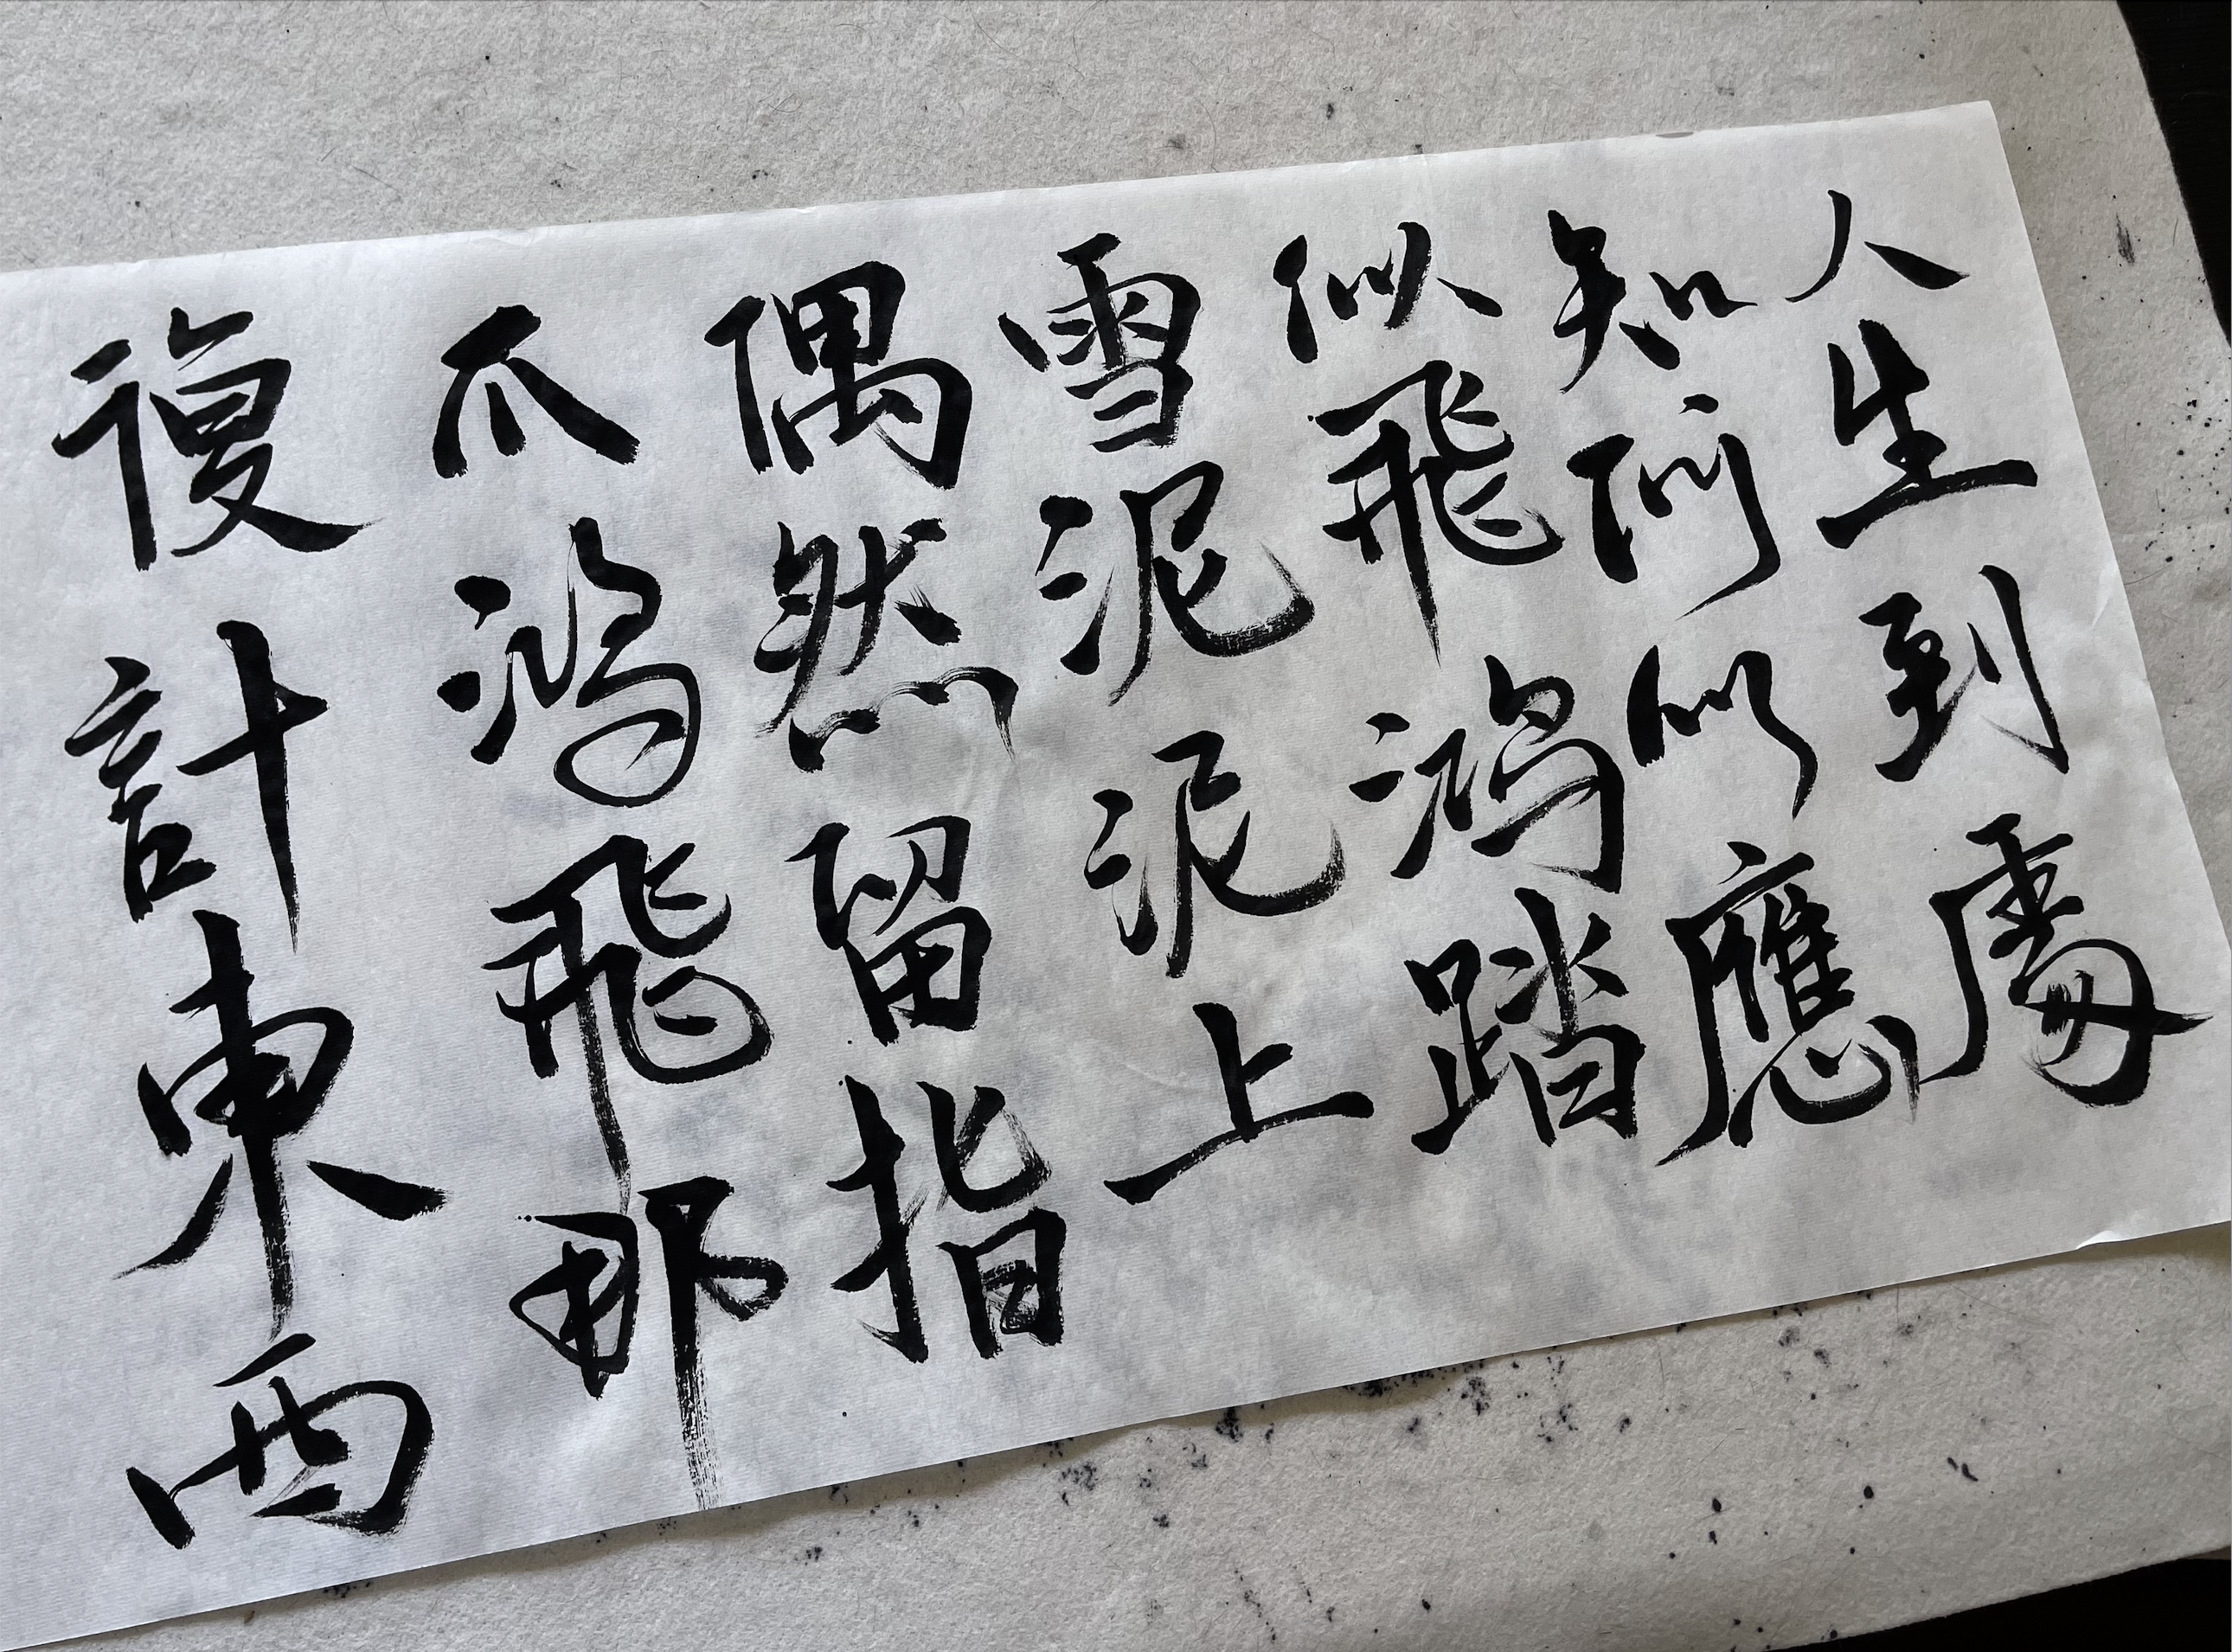 人生到處
知何似應
似飛鴻踏
雪泥泥上
偶然留指
爪鴻飛那
復計東西